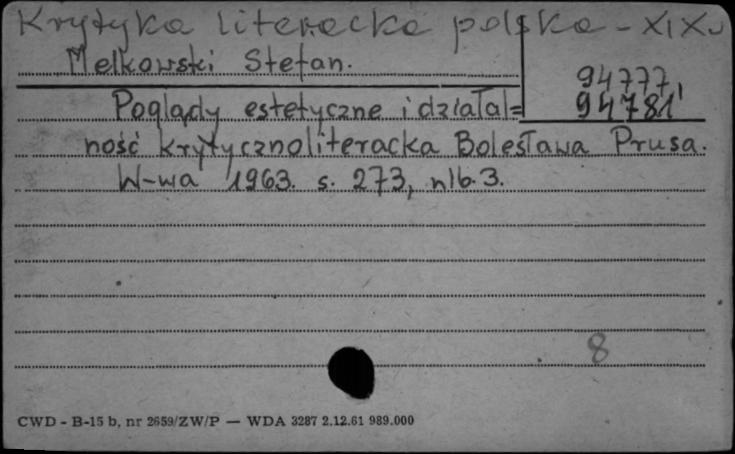 Krytyka literacka polska - XIX w
Melkowski Stefan.
94777,
94781
Poglądy estetyczne i działal=
ność krytycznoliteracka Bolesława Prusa.
W-wa 1963. s. 273, nlb. 3.
8
CWD - B-15 b, nr 2659/ZW/P — WDA 3287 2.12.61 989.000